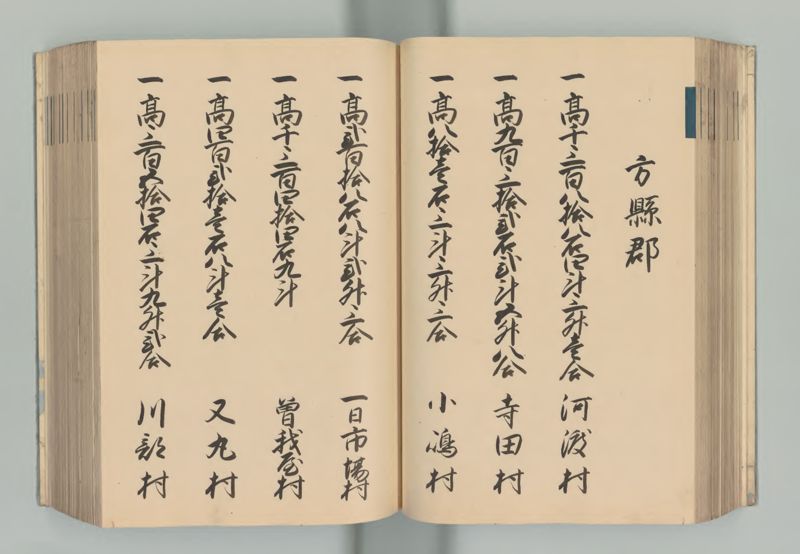 方縣郡
一高千三百八拾八石四斗三升壱合 河渡村
一高九百三拾弐石弐斗五升八合 寺田村
一高八拾壱石三斗三升三合 小嶋村
一高弐百拾八石八斗弐升三合 一日市場村
一高千三百四拾四石九斗 曽我屋村
一高四百弐拾壱石八斗壱合 又丸村
一高三百五拾四石三斗九升弐合 川部村